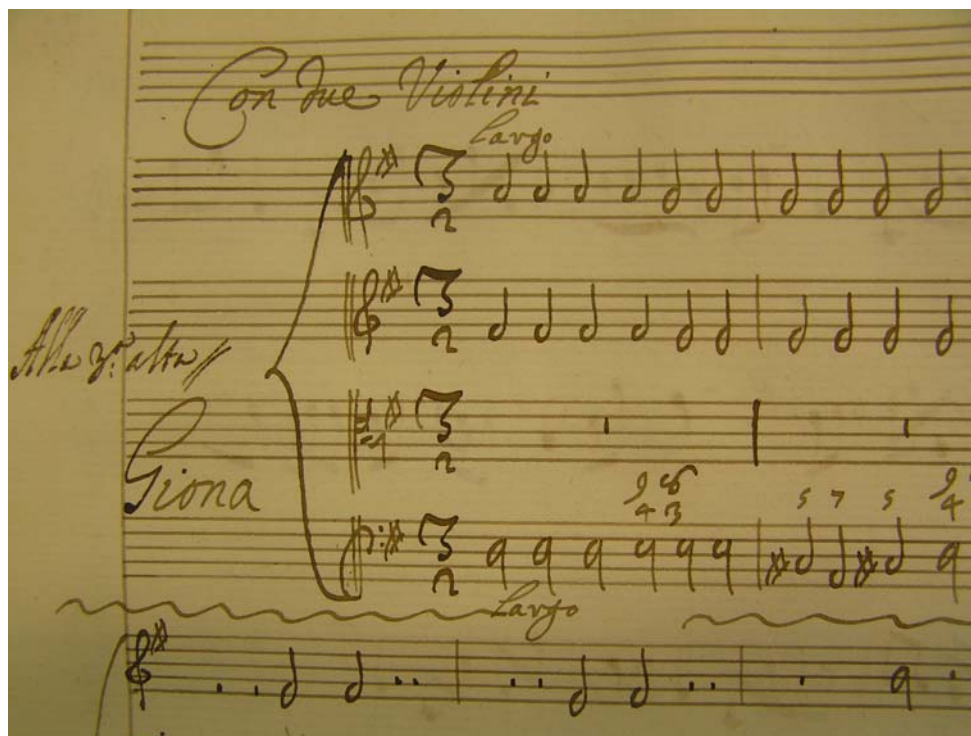 Con due Violini
Largo
3
2
3
2
Alla 3.a alta
3
2
Giona
9 6
4 3
5 7 5
9
4
3
2
Largo